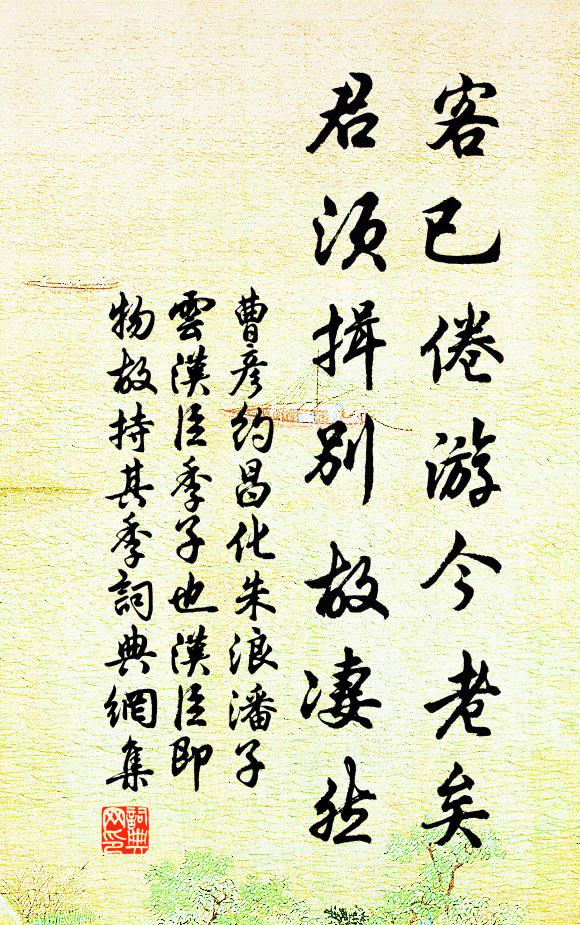 客已倦游今老矣
君须揖别故凄然
曹彦约昌化朱浪潘子
雲漢臣季子也漢臣即
物故持其季詞典網集
詞典網印